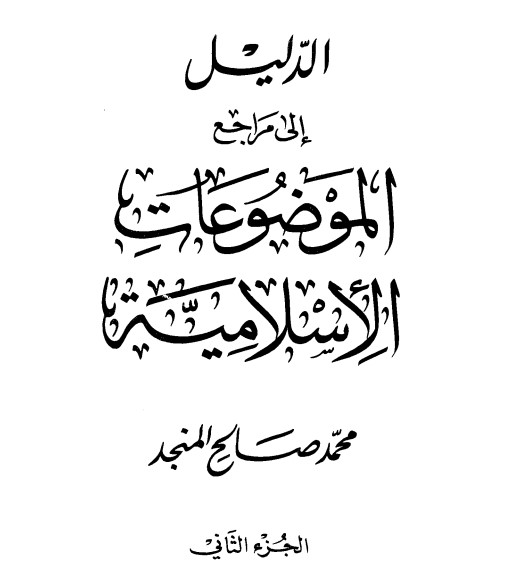 الدليل
إلى مراجع
الموضوعات
الإسلامية
محمد صالح المنجد
الجزء الثاني